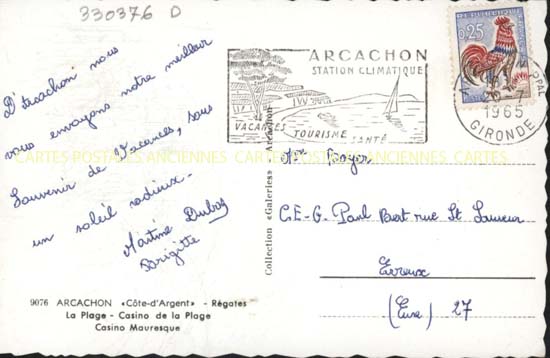 330376 D
D'arcachon nous
vous envoyons notre meilleur
Souvenir de Vacances, sous
un soleil radieux -
Martine Dubos
Brigitte
9076 ARCACHON «Côte-d'Argent» - Régates
La Plage - Casino de la Plage
Casino Mauresque
Collection «Galeries» Arcachon
ARCACHON
STATION CLIMATIQUE
VACANCES TOURISME SANTÉ
0,25
PPAL
1965
GIRONDE
CARTES POSTALES ANCIENNES CARTES POSTALES ANCIENNES CARTES
C.E.G. Paul Bert rue St Sauveur
Evreux
(Eure) 27